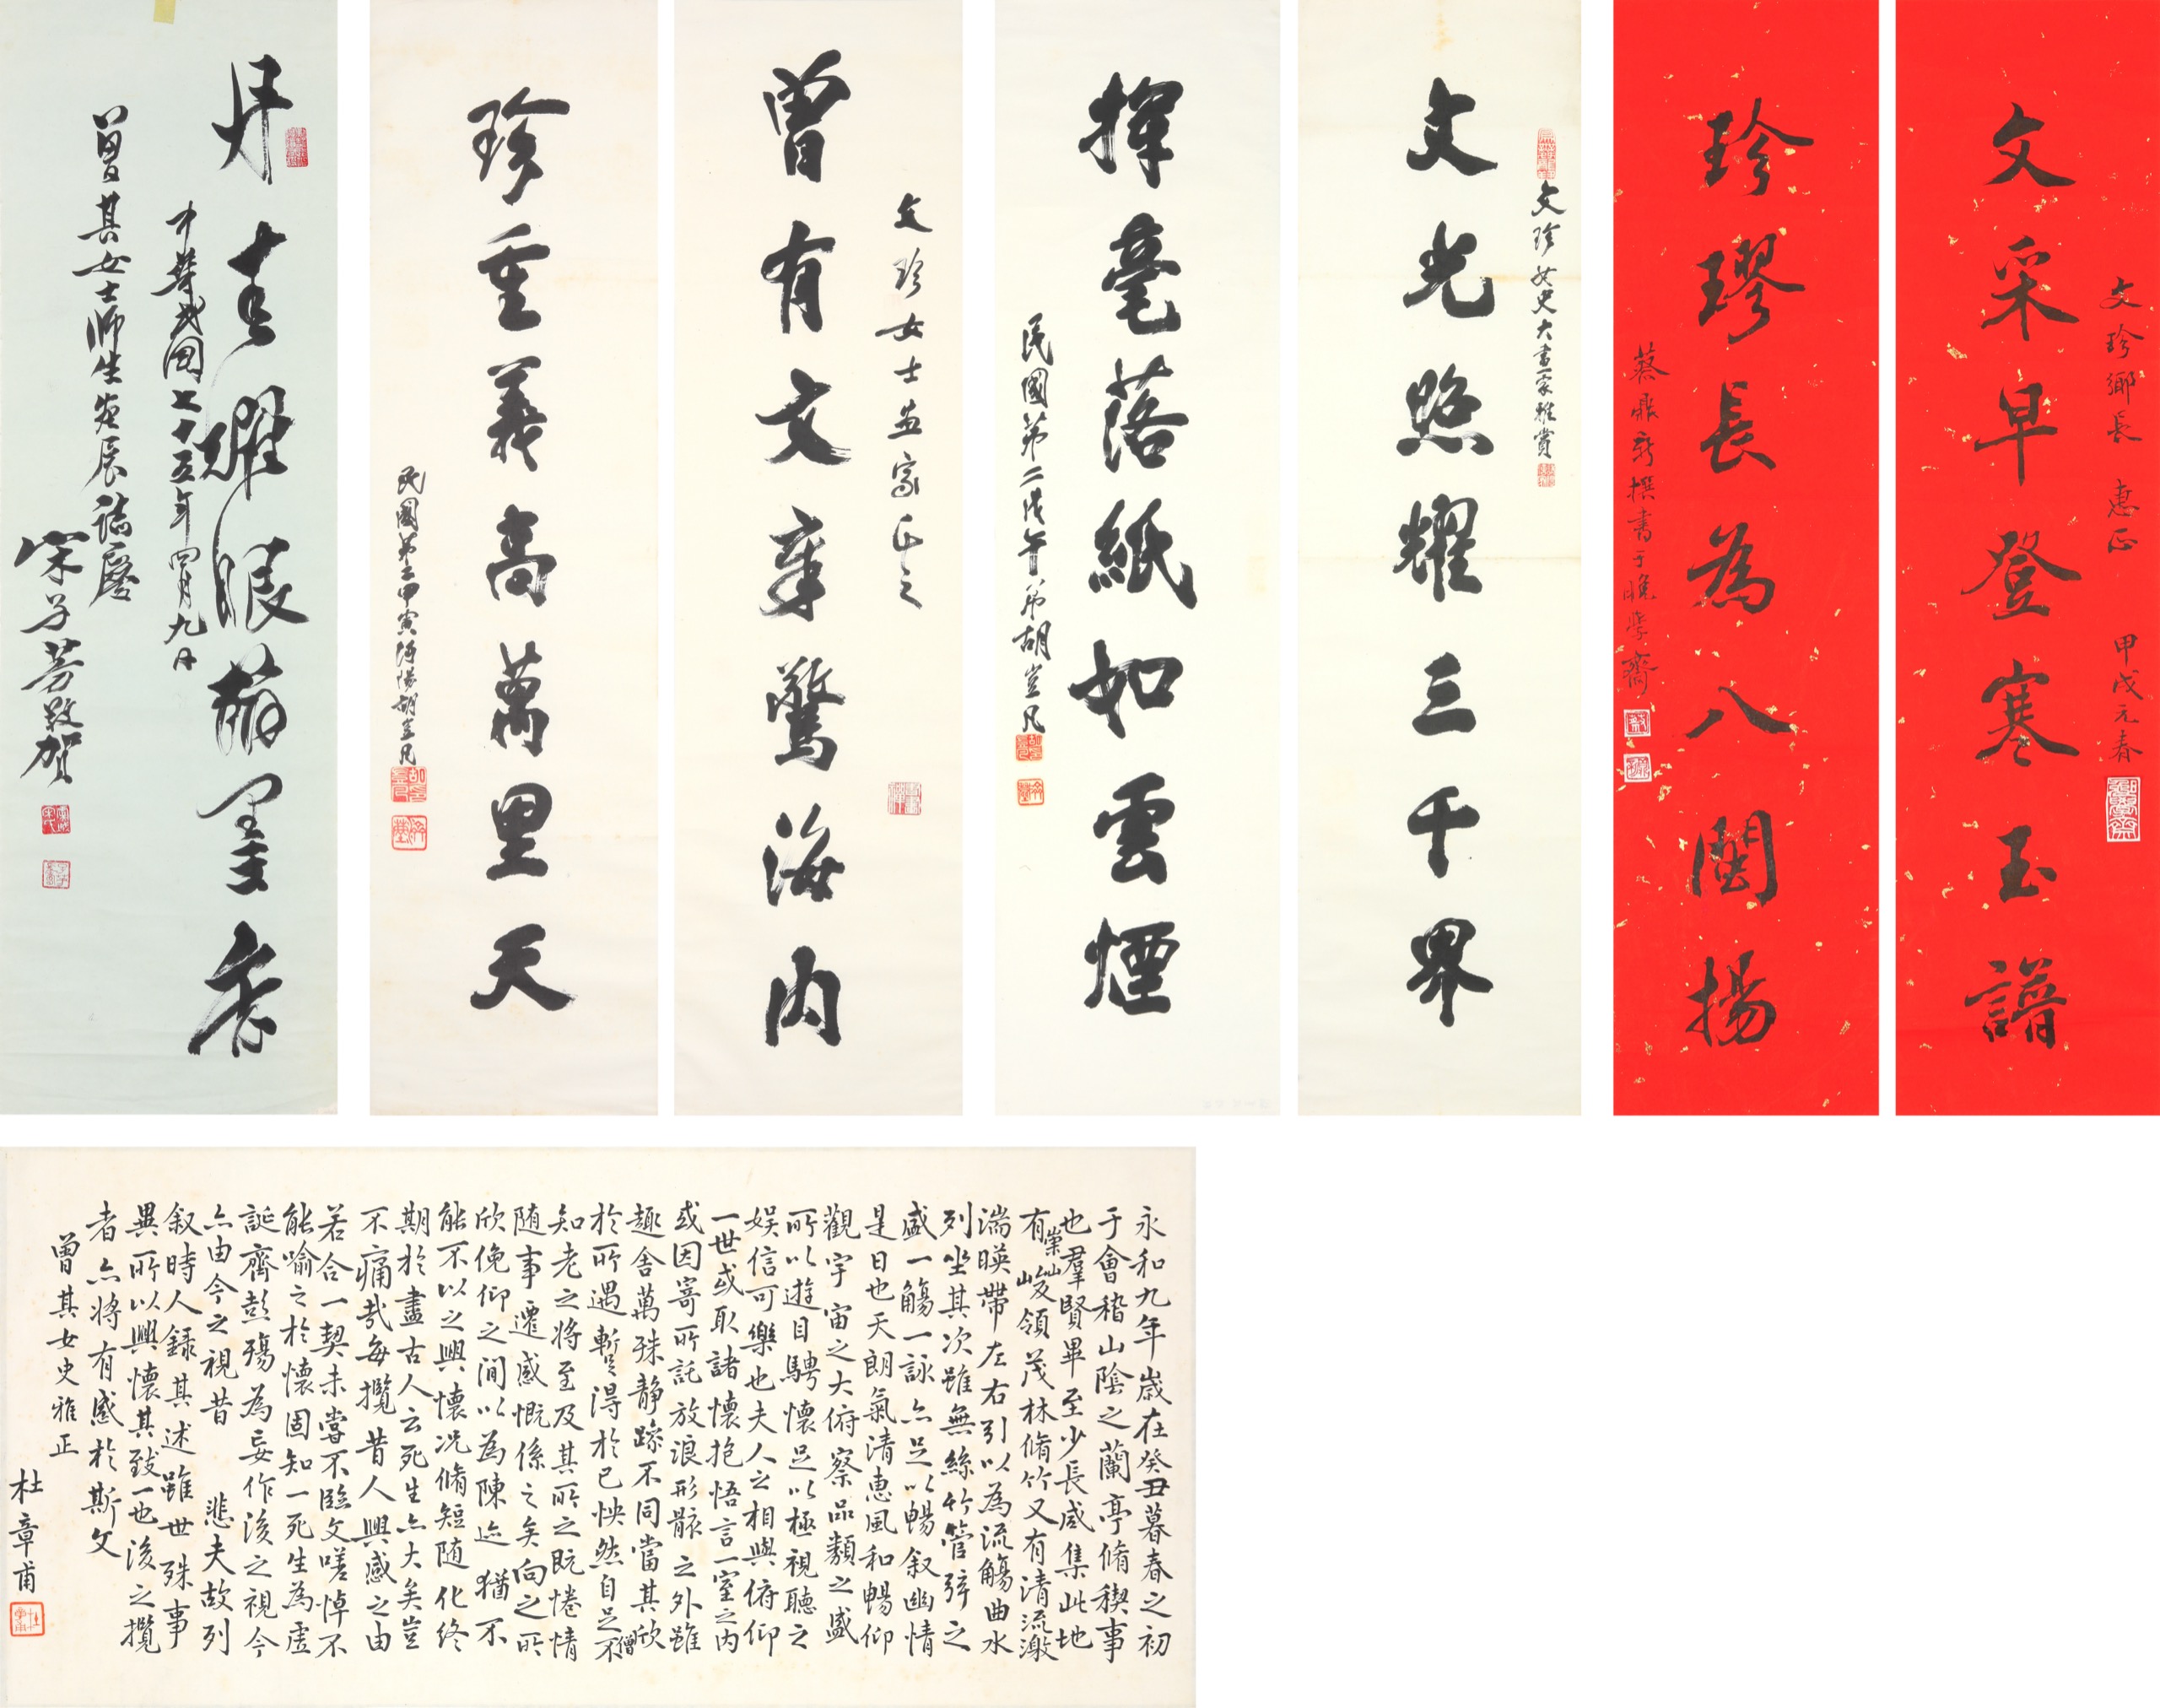 文珍鄉長 惠正 甲戌元春
文采早登寒玉譜
珍璆長為八閩揚
蔡鼎新撰書于晚學齋
文珍女史大畫家雅賞
文光照耀三千界
揮毫落紙如雲煙
民國第二戊午弟胡豈凡
文珍女士畫家正之
曾有文章驚海内
珍重義高萬里天
民國第二甲寅沔陽胡豈凡
丹青耀眼翰墨香
中華民國七十五年四月九日
曾其女士師生花辰誌慶
宋子芳敬賀
永和九年歲在癸丑暮春之初
于會稽山陰之蘭亭脩稧事
也羣賢畢至少長咸集此地
有崇山峻領茂林脩竹又有清流激
湍暎帶左右引以為流觴曲水
列坐其次雖無絲竹管弦之
盛一觴一詠亦足以暢叙幽情
是日也天朗氣清惠風和暢仰
觀宇宙之大俯察品類之盛
所以遊目騁懷足以極視聽之
娱信可樂也夫人之相與俯仰
一世或取諸懷抱悟言一室之内
或因寄所託放浪形骸之外雖
趣舍萬殊静躁不同當其欣
於所遇暫得於己怏然自足不
知老之將至及其所之既惓情
随事遷感慨係之矣向之所
欣俛仰之間以為陳迹猶不
能不以之興懷況脩短随化終
期於盡古人云死生亦大矣豈
不痛哉每攬昔人興感之由
若合一契未嘗不臨文嗟悼不
能喻之於懷固知一死生為虛
誕齊彭殤為妄作後之視今
亦由今之視昔 悲夫故列
叙時人録其述雖世殊事
異所以興懷其致一也後之攬
者亦將有感於斯文
曾其女史雅正
杜章甫